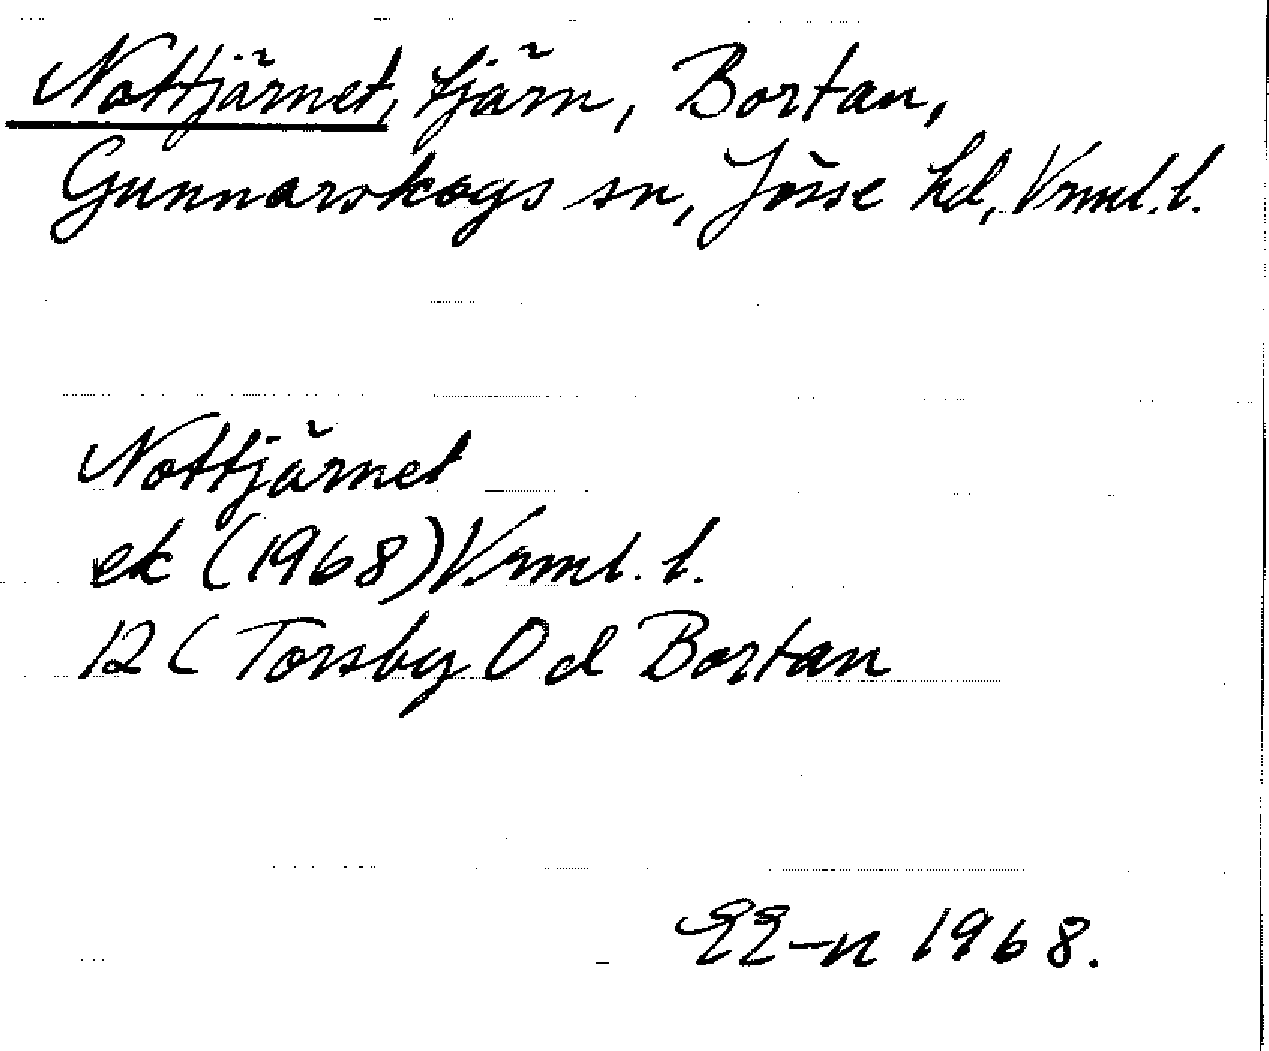 Nottjärnet, tjärn, Bortan,
Gunnarskogs sn, Jösse hd, Vrml. l.
Nottjärnet
ek (1968) Vrml. l.
12 C Torsby 0 d Bortan
EE-n 1968.